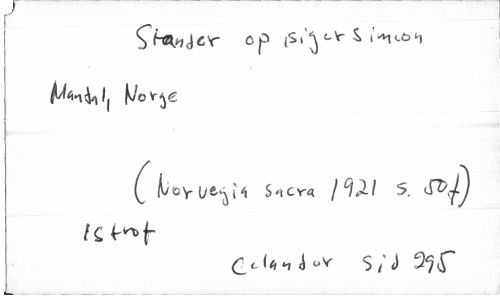 Stander op siger Simeon
Mandal, Norge
(Norvegia sacra 1921 s. 50f)
1 strof
Celander sid 295